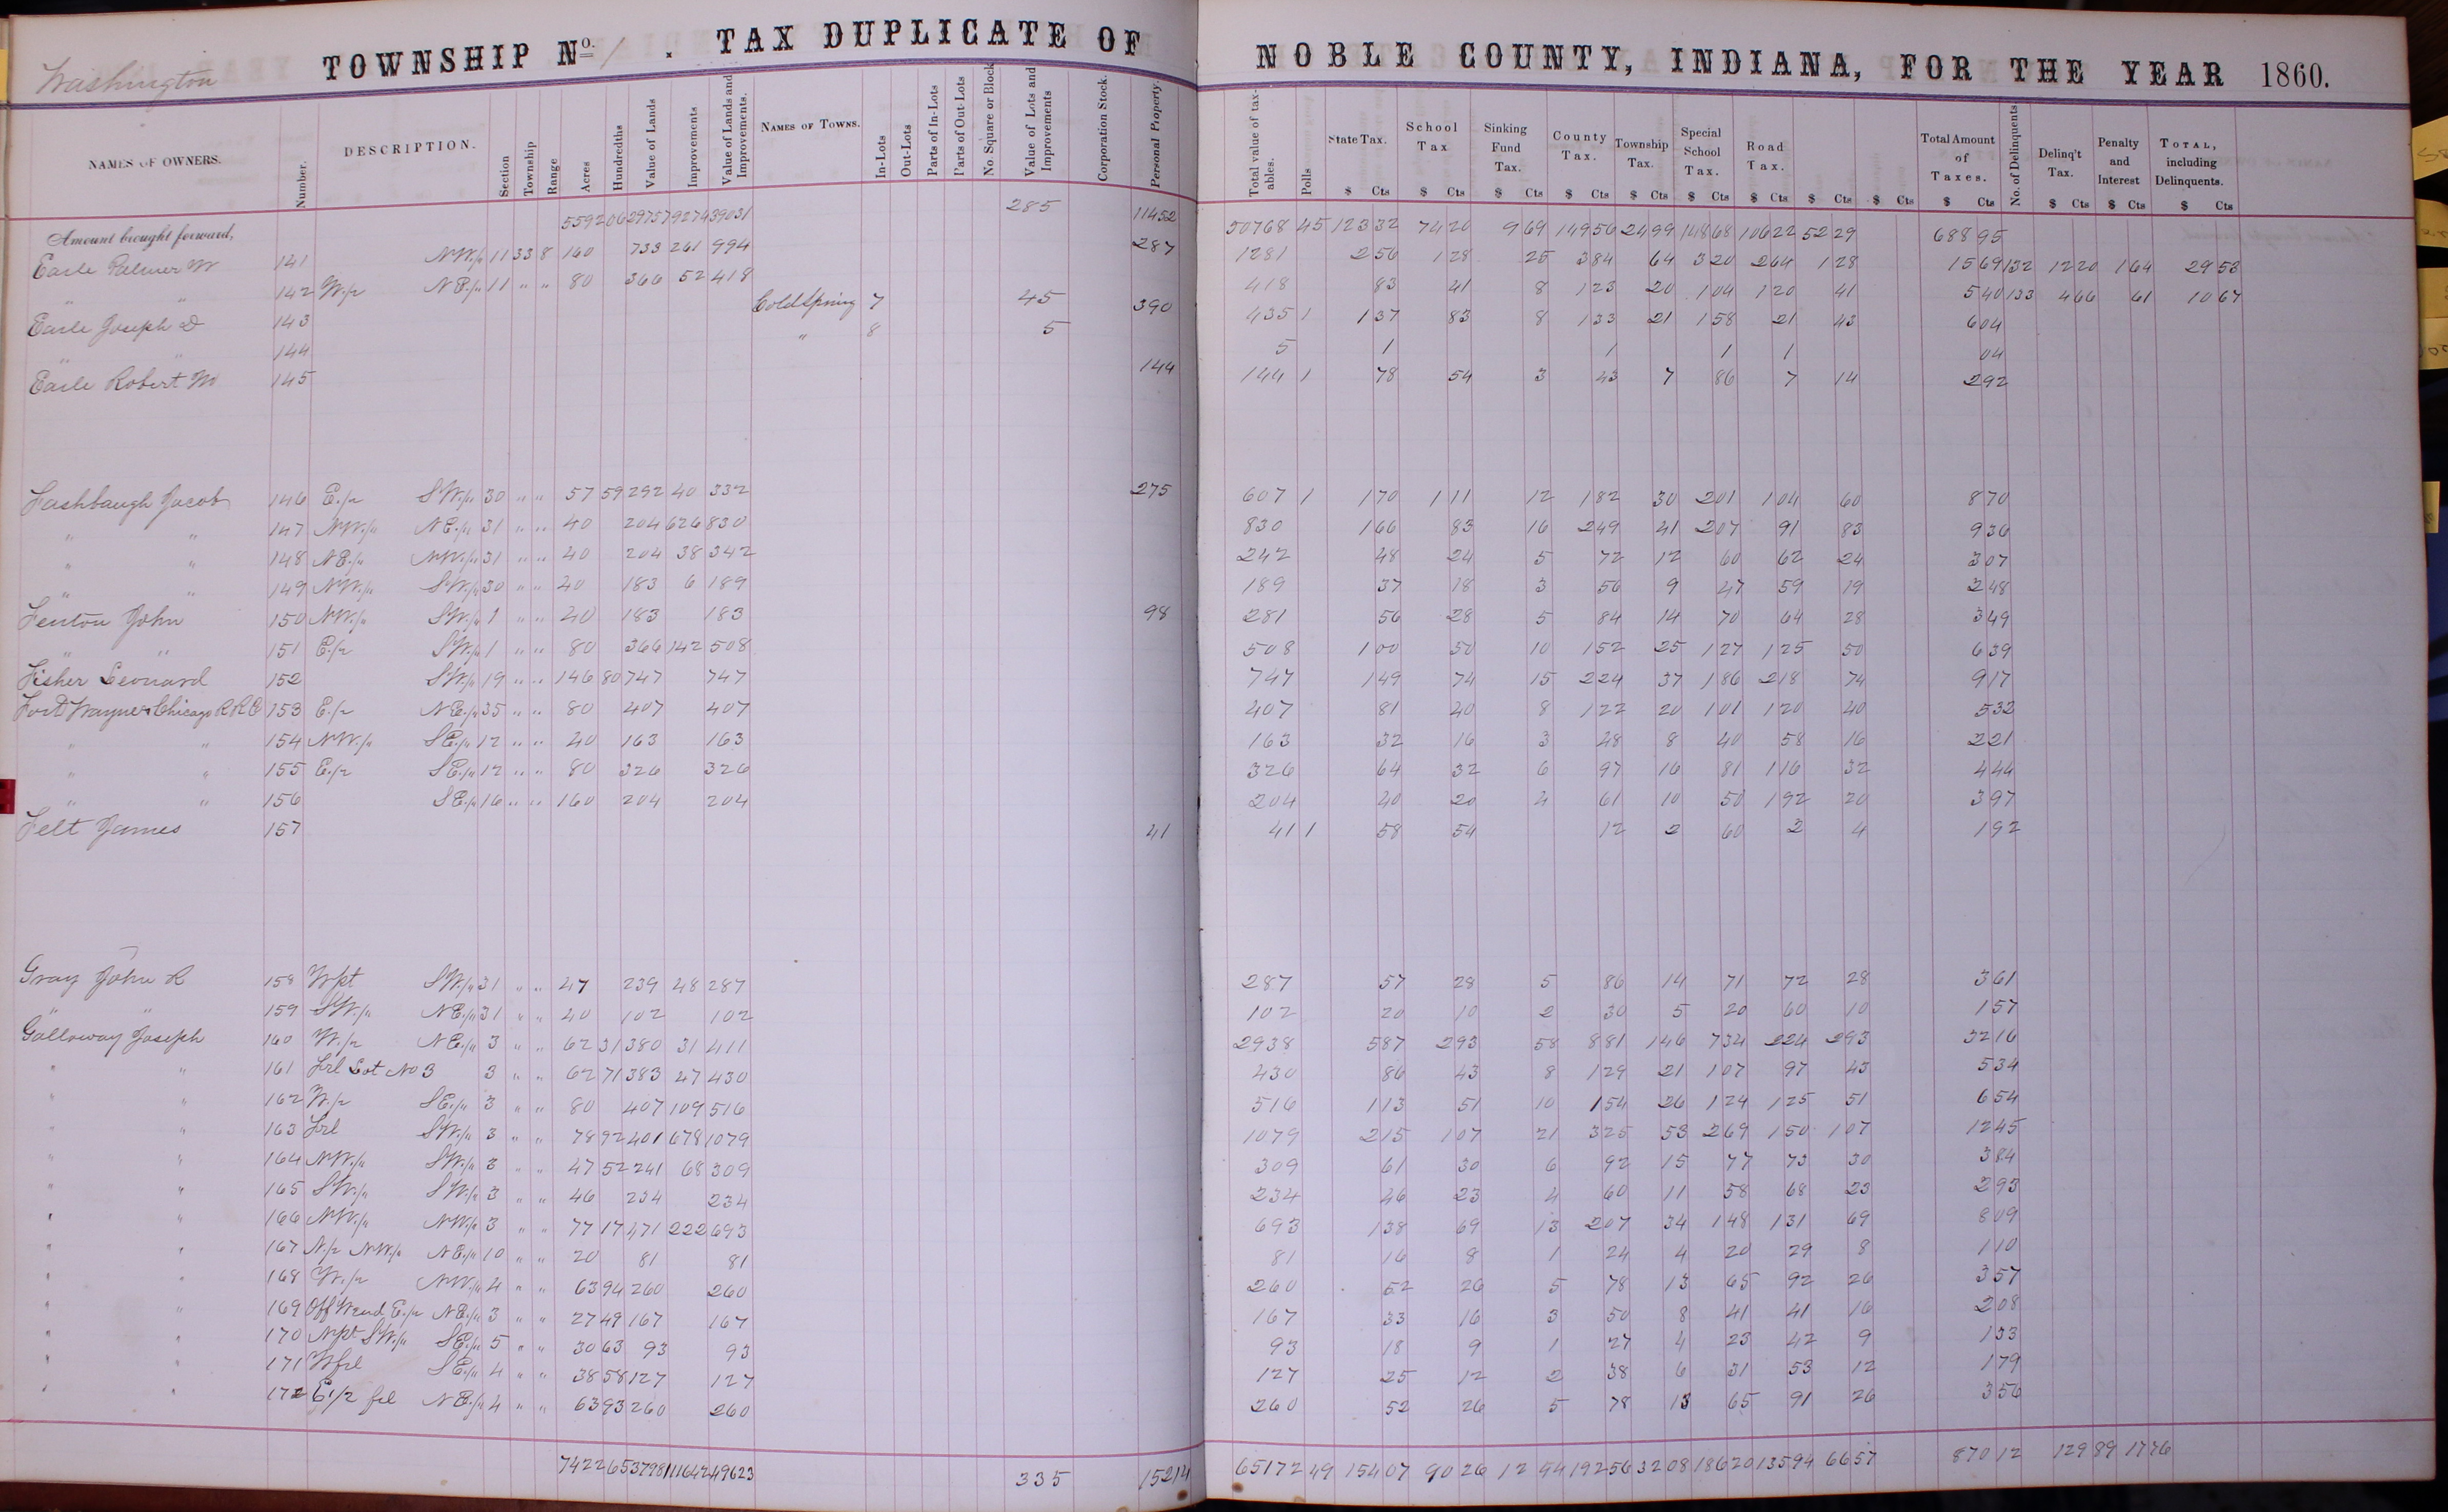 Washington TOWNSHIP No. 1. TAX DUPLICATE OF NOBLE COUNTY, INDIANA, FOR THE YEAR 1860.
NAMES OF OWNERS. Number. DESCRIPTION. Section Township Range Acres Hundredths Value of Lands Improvements Value of Lands and Improvements. NAMES OF TOWNS. In-Lots Out-Lots Parts of In-Lots Parts of Out-Lots No. Square or Block Value of Lots and Improvements Corporation Stock. Personal Property. Total value of taxables. Polls State Tax. School Tax Sinking Fund Tax. County Tax. Township Tax. Special School Tax. Road Tax. Total Amount of Taxes. No. of Delinquents Delinq't Tax. Penalty and Interest TOTAL, including Delinquents.
$ Cts $ Cts $ Cts $ Cts $ Cts $ Cts $ Cts $ Cts $ Cts $ Cts $ Cts $ Cts $ Cts
Amount brought forward, 5592 06 29757 9274 39031 285 11452 50768 45 123 32 74 20 9 69 149 56 24 99 148 68 106 22 52 29 688 95
Earle Palmer W 141 NW/4 11 33 8 160 733 261 994 287 1281 2 56 1 28 25 3 84 64 3 20 2 64 1 28 15 69 132 12 20 1 64 29 53
" " 142 W/2 NE/4 11 " " 80 366 52 418 418 83 41 8 1 23 20 1 04 1 20 41 5 40 133 4 66 61 10 67
Earle Joseph D 143 Cold Spring 7 45 390 435 1 1 37 83 8 1 33 21 1 58 21 43 6 04
" " 144 " 8 5 5 1 1 1 1 04
Earle Robert M 145 144 144 1 78 54 3 43 7 86 7 14 2 92
Fashbaugh Jacob 146 E/2 SW/4 30 " " 57 59 292 40 332 275 607 1 1 70 1 11 12 1 82 30 2 01 1 04 60 8 70
" " 147 NW/4 NE/4 31 " " 40 204 626 830 830 1 66 83 16 2 49 41 2 07 91 83 9 36
" " 148 NE/4 NW/4 31 " " 40 204 38 342 242 48 24 5 72 12 60 62 24 3 07
" " 149 NW/4 SW/4 30 " " 40 183 6 189 189 37 18 3 56 9 47 59 19 2 48
Fenton John 150 NW/4 SW/4 1 " " 40 183 183 98 281 56 28 5 84 14 70 64 28 3 49
" " 151 E/2 SW/4 1 " " 80 366 142 508 508 1 00 50 10 1 52 25 1 27 1 25 50 6 39
Fisher Leonard 152 SW/4 19 " " 146 80 747 747 747 1 49 74 15 2 24 37 1 86 2 18 74 9 17
Fort Wayne & Chicago R R C 153 E/2 NE/4 35 " " 80 407 407 407 81 40 8 1 22 20 1 01 1 20 40 5 32
" " 154 NW/4 SE/4 12 " " 40 163 163 163 32 16 3 48 8 40 58 16 2 21
" " 155 E/2 SE/4 12 " " 80 326 326 326 64 32 6 97 16 81 1 16 32 4 44
" " 156 SE/4 16 " " 160 204 204 204 40 20 4 61 10 50 1 92 20 3 97
Felt James 157 41 41 1 58 54 12 2 60 2 4 1 92
Gray John R 158 Wpt SW/4 31 " " 47 239 48 287 287 57 28 5 86 14 71 72 28 3 61
" " 159 SW/4 NE/4 31 " " 40 102 102 102 20 10 2 30 5 20 60 10 1 57
Galloway Joseph 160 W/2 NE/4 3 " " 62 31 380 31 411 2938 5 87 2 93 58 8 81 1 46 7 34 2 24 2 93 32 16
" " 161 Frl Lot No 3 3 " " 62 71 383 47 430 430 86 43 8 1 29 21 1 07 97 43 5 34
" " 162 W/2 SE/4 3 " " 80 407 109 516 516 1 13 51 10 1 54 26 1 24 1 25 51 6 54
" " 163 Frl SW/4 3 " " 78 92 401 678 1079 1079 2 15 1 07 21 3 25 53 2 69 1 50 1 07 12 45
" " 164 NW/4 SW/4 3 " " 47 52 241 68 309 309 61 30 6 92 15 77 73 30 3 84
" " 165 SW/4 SW/4 3 " " 46 234 234 234 46 23 4 60 11 58 68 23 2 93
" " 166 NW/4 NW/4 3 " " 77 17 471 222 693 693 1 38 69 13 2 07 34 1 48 1 31 69 8 09
" " 167 N/2 NW/4 NE/4 10 " " 20 81 81 81 16 8 1 24 4 20 29 8 1 10
" " 168 W/2 NW/4 4 " " 63 94 260 260 260 52 26 5 78 13 65 92 26 3 57
" " 169 Off W end E/2 NE/4 3 " " 27 49 167 167 167 33 16 3 50 8 41 41 16 2 08
" " 170 Npt SW/4 SE/4 5 " " 30 63 93 93 93 18 9 1 27 4 23 42 9 1 33
" " 171 Wfrl SE/4 4 " " 38 58 127 127 127 25 12 2 38 6 31 53 12 1 79
" " 172 E1/2 frl NE/4 4 " " 63 93 260 260 260 52 26 5 78 13 65 91 26 3 56
7422 65 37981 11642 49623 335 15214 65172 49 154 07 90 26 12 54 192 56 32 08 186 20 135 94 66 57 870 12 129 89 17 76